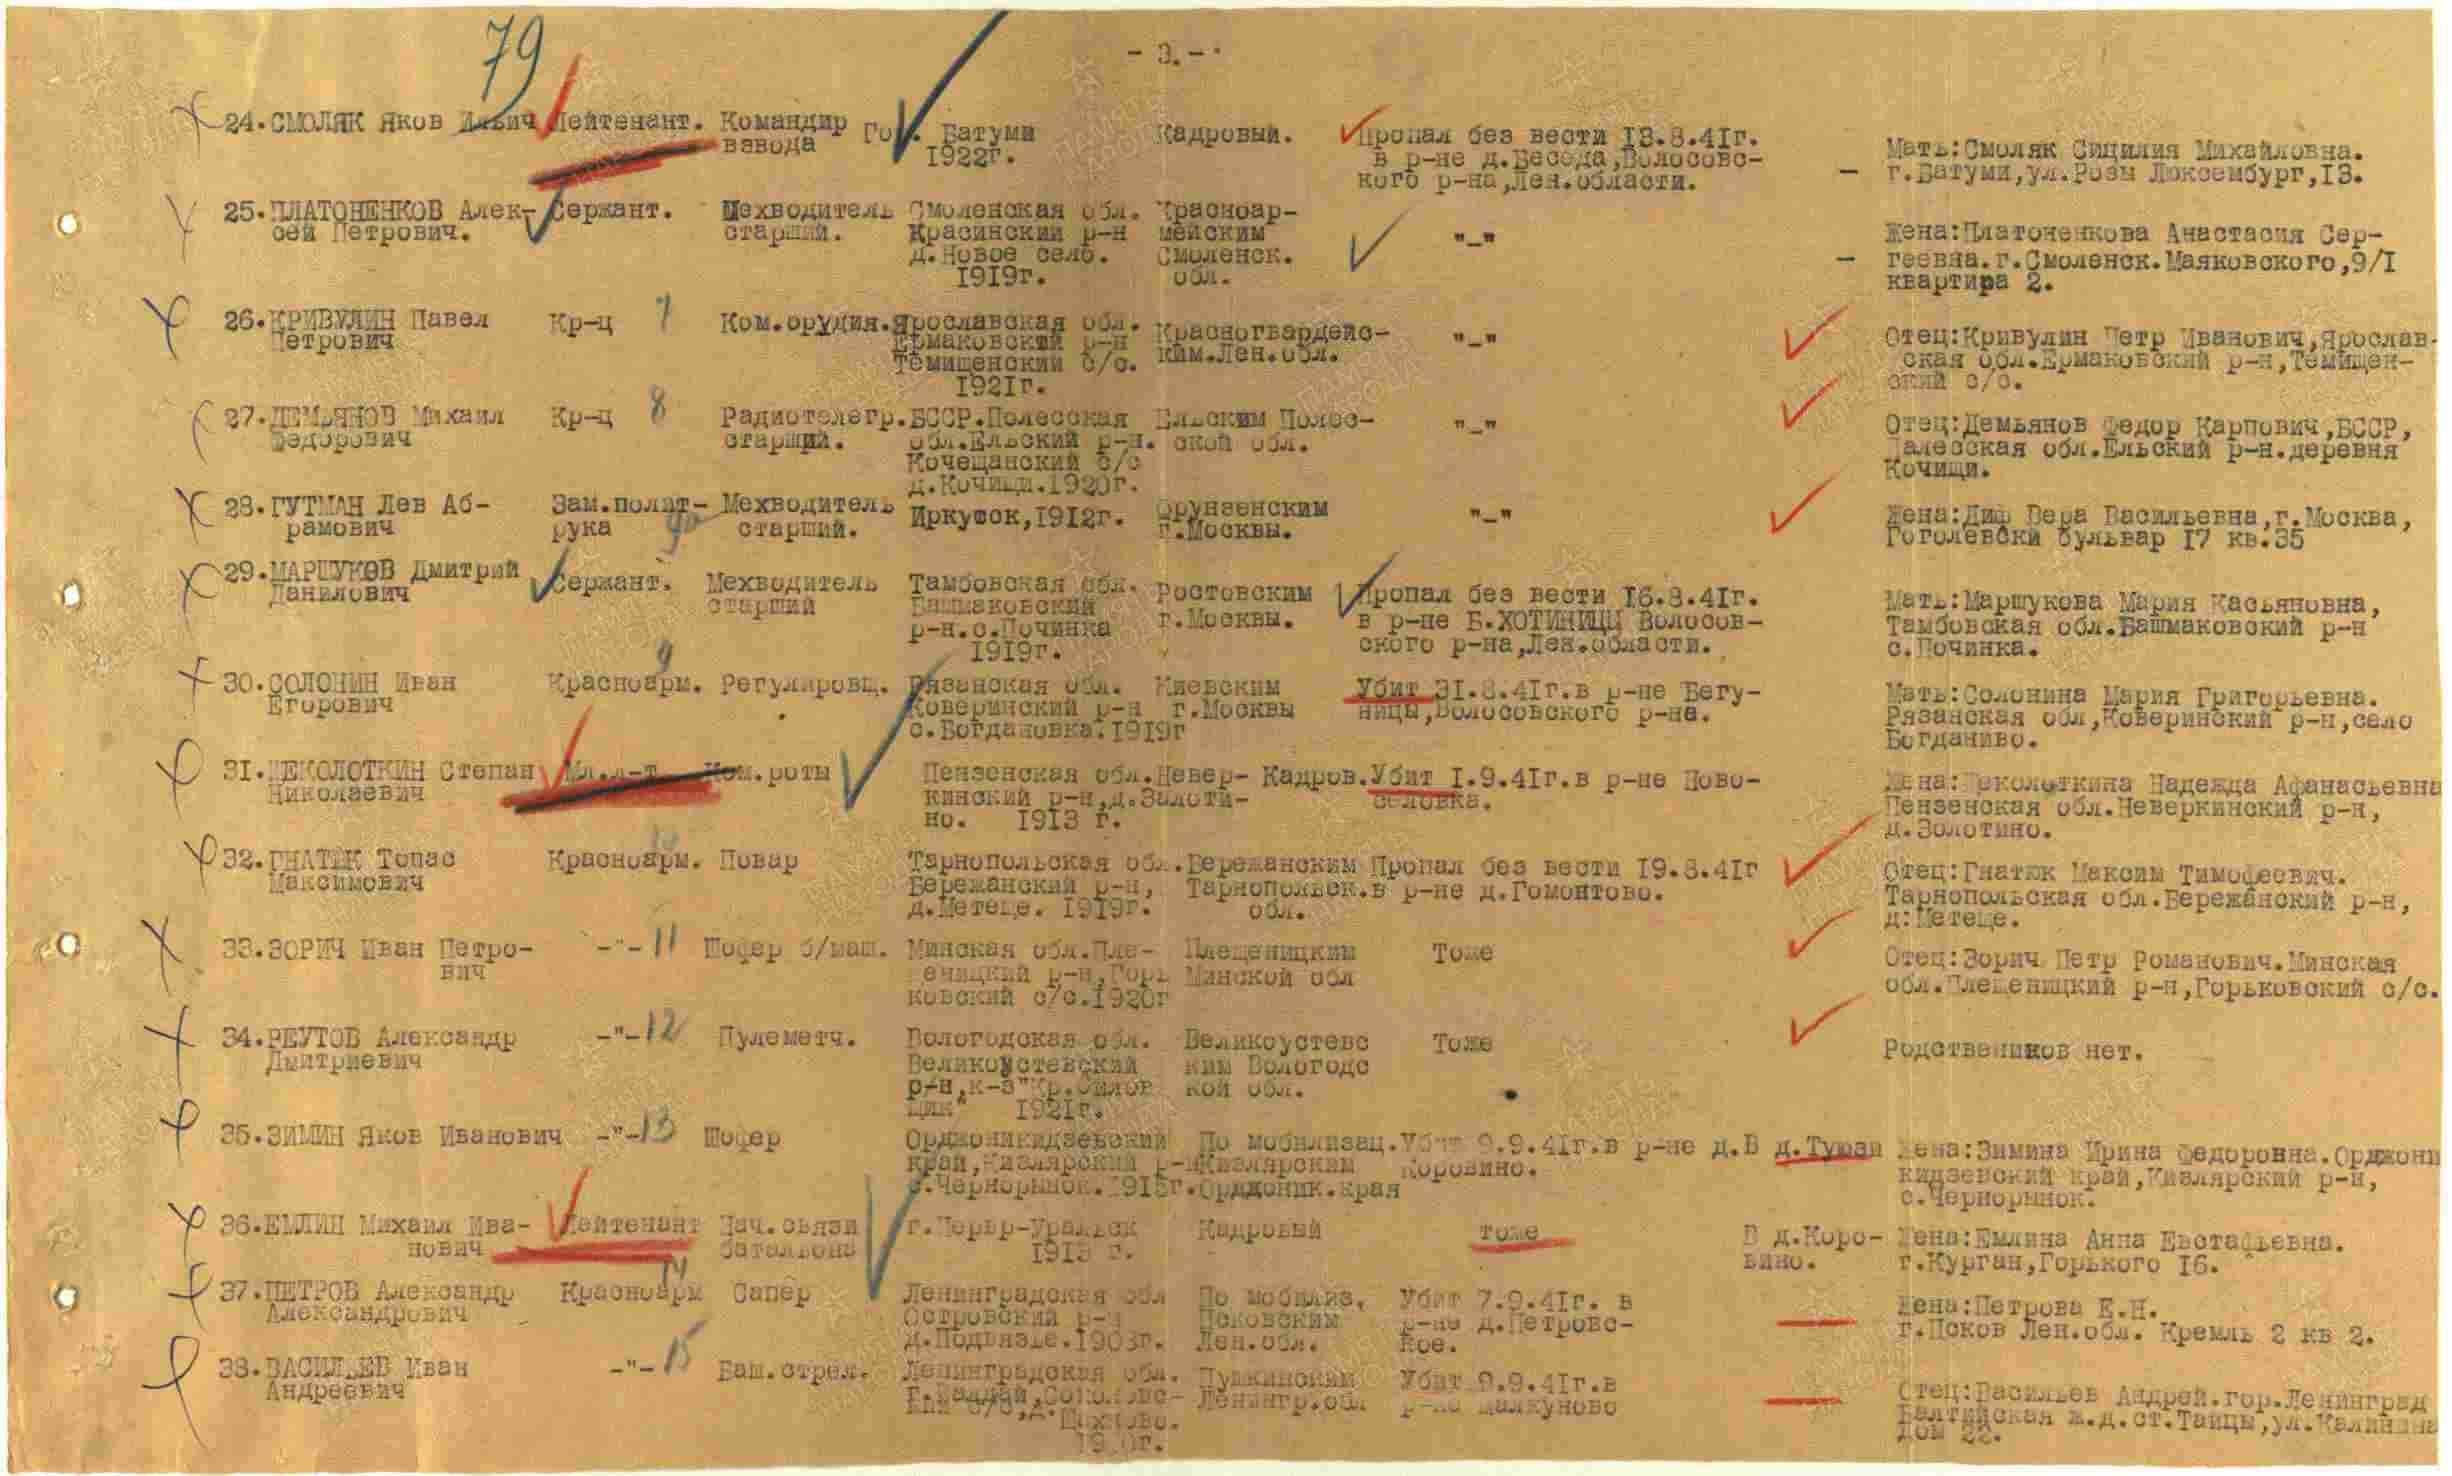 79
- 3. -
24. СМОЛЯК Яков Ильич Лейтенант. Командир взвода Гор. Батуми 1922г. Кадровый. Пропал без вести 13.8.41г. в р-не д.Беседа,Волосовс-кого р-на,Лен.области. - Мать:Смоляк Сицилия Михайловна. г.Батуми,ул.Розы Люксембург,13.
25. ПЛАТОНЕНКОВ Алек-сей Петрович. Сержант. Мехводитель старший. Смоленская обл. Красинский р-н д.Новое село. 1919г. Красноар-мейским Смоленск. обл. "-" - Жена:Платоненкова Анастасия Сер-геевна.г.Смоленск.Маяковского,9/1 квартира 2.
26. КРИВУЛИН Павел Петрович Кр-ц 7 Ком.орудия. Ярославская обл. Ермаковский р-н Темищенский с/с. 1921г. Красногвардейс-ким.Лен.обл. "-" Отец:Кривулин Петр Иванович,Ярослав-ская обл.Ермаковский р-н,Темищен-ский с/с.
27. ДЕМЬЯНОВ Михаил Федорович Кр-ц 8 Радиотелегр. старший. БССР.Полесская обл.Ельский р-н. Кочещанский с/с д.Кочищи.1920г. Ельским Полес-ской обл. "-" Отец:Демьянов Федор Карпович,БССР, Палесская обл.Ельский р-н.деревня Кочищи.
28. ГУТМАН Лев Аб-рамович Зам.полит-рука Мехводитель старший. Иркутск,1912г. Фрунзенским г.Москвы. "-" Жена:Диф Вера Васильевна,г.Москва, Гоголевски бульвар 17 кв.35
29. МАРШУКОВ Дмитрий Данилович Сержант. Мехводитель старший Тамбовская обл. Башмаковский р-н.с.Починка 1919г. Ростовским г.Москвы. Пропал без вести 16.8.41г. в р-не Б.ХОТИНИЦЫ Волосов-ского р-на,Лен.области. Мать:Маршукова Мария Касьяновна, Тамбовская обл.Башмаковский р-н с.Починка.
30. СОЛОНИН Иван Егорович Красноарм. 9 Регулировщ. Рязанская обл. Коверинский р-н с.Богдановка.1919г Киевским г.Москвы Убит 31.8.41г.в р-не Бегу-ницы,Волосовского р-на. Мать:Солонина Мария Григорьевна. Рязанская обл,Коверинский р-н,село Богданиво.
31. ЩЕКОЛОТКИН Степан Николаевич Мл.л-т Ком.роты Пензенская обл.Невер-кинский р-н,д.Залоти-но. 1913 г. Кадров. Убит 1.9.41г.в р-не Ново-селовка. Жена:Щеколоткина Надежда Афанасьевна Пензенская обл.Неверкинский р-н, д.Золотино.
32. ГНАТЮК Топас Максимович Красноарм. 10 Повар Тарнопольская обл. Бережанский р-н, д.Метеще. 1919г. Бережанским Тарнопольск. обл. Пропал без вести 19.8.41г в р-не д.Гомонтово. Отец:Гнатюк Максим Тимофеевич. Тарнопольская обл.Бережанский р-н, д:Метеще.
33. ЗОРИЧ Иван Петро-вич -"- 11 Шофер б/маш. Минская обл.Пле-щеницкий р-н,Горь ковский с/с.1920г Плещеницким Минской обл Тоже Отец:Зорич Петр Романович.Минская обл.Плещеницкий р-н,Горьковский с/с.
34. РЕУТОВ Александр Дмитриевич -"- 12 Пулеметч. Вологодская обл. Великоустевский р-н,к-з"Кр. 1921г. Великоустевс ким Вологодс кой обл. Тоже Родствеников нет.
35. ЗИМИН Яков Иванович -"- 13 Шофер Орджоникидзевский край,Кизлярский р-н с.Чернорынок.1915г. По мобилизац. Кизлярским Орджоник.края Убит 9.9.41г.в р-не д. Коровино. В д.Туюзи Жена:Зимина Ирина Федоровна.Орджони кидзевский край,Кизлярский р-н, с.Чернорынок.
36. ЕМЛИН Михаил Ива-нович Лейтенант Нач.связи батальона г.Перьр-Уральск 1913 г. Кадровый тоже В д.Коро-вино. Жена:Емлина Анна Евстафьевна. г.Курган,Горького 16.
37. ПЕТРОВ Александр Александрович Красноарм 14 Сапер Ленинградская обл Островский р-н д.Подвязье.1903г. По мобилиз. Псковским Лен.обл. Убит 7.9.41г. в р-не д.Петровс-кое. Жена:Петрова Е.Н. г.Псков Лен.обл. Кремль 2 кв 2.
38. ВАСИЛЬЕВ Иван Андреевич -"- 15 Баш.стрел. Ленинградская обл. Пушкинским Ленингр.обл Убит 9.9.41г.в р-не Малкуново Отец:Васильев Андрей.гор.Ленинград Балтийская ж.д.ст.Тайцы,ул.Калинина Дом 22.